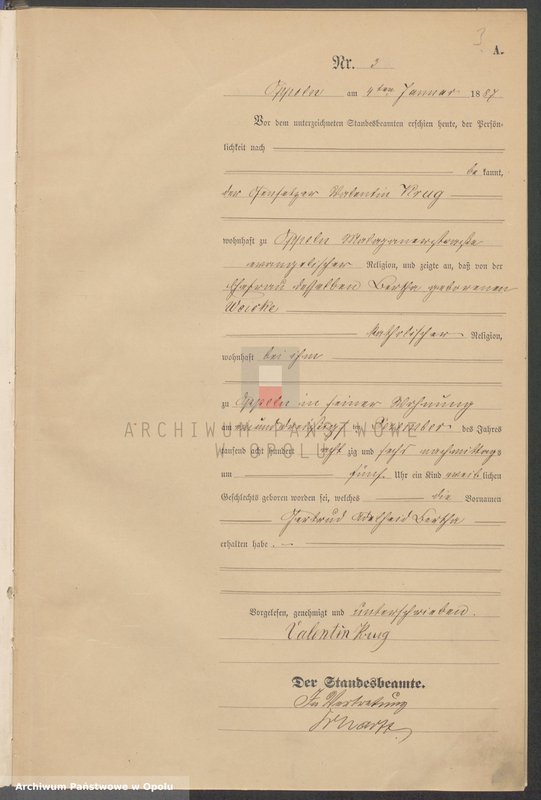 3.
A.
Nr. 3
Oppeln am 4ten Januar 1887
Vor dem unterzeichneten Standesbeamten erschien heute, der Persön-
lichkeit nach
be kannt,
der Valentin Krug
wohnhaft zu Oppeln Malapanerstraße
evangelischer Religion, und zeigte an, daß von der
Ehefrau desselben Bertha geborenen
katholischer Religion,
wohnhaft bei ihm
zu Oppeln in seiner Wohnung
am ein und dreißigsten Dezember des Jahres
tausend acht hundert acht zig und sechs nachmittags
um fünf Uhr ein Kind weib lichen
Geschlechts geboren worden sei, welches die Vornamen
Gertrud Adelheid Bertha
erhalten habe.
Vorgelesen, genehmigt und unterschrieben.
Valentin Krug
Der Standesbeamte.
In Vertretung
ARCHIWUM PAŃSTWOWE
W OPOLU
Archiwum Państwowe w Opolu